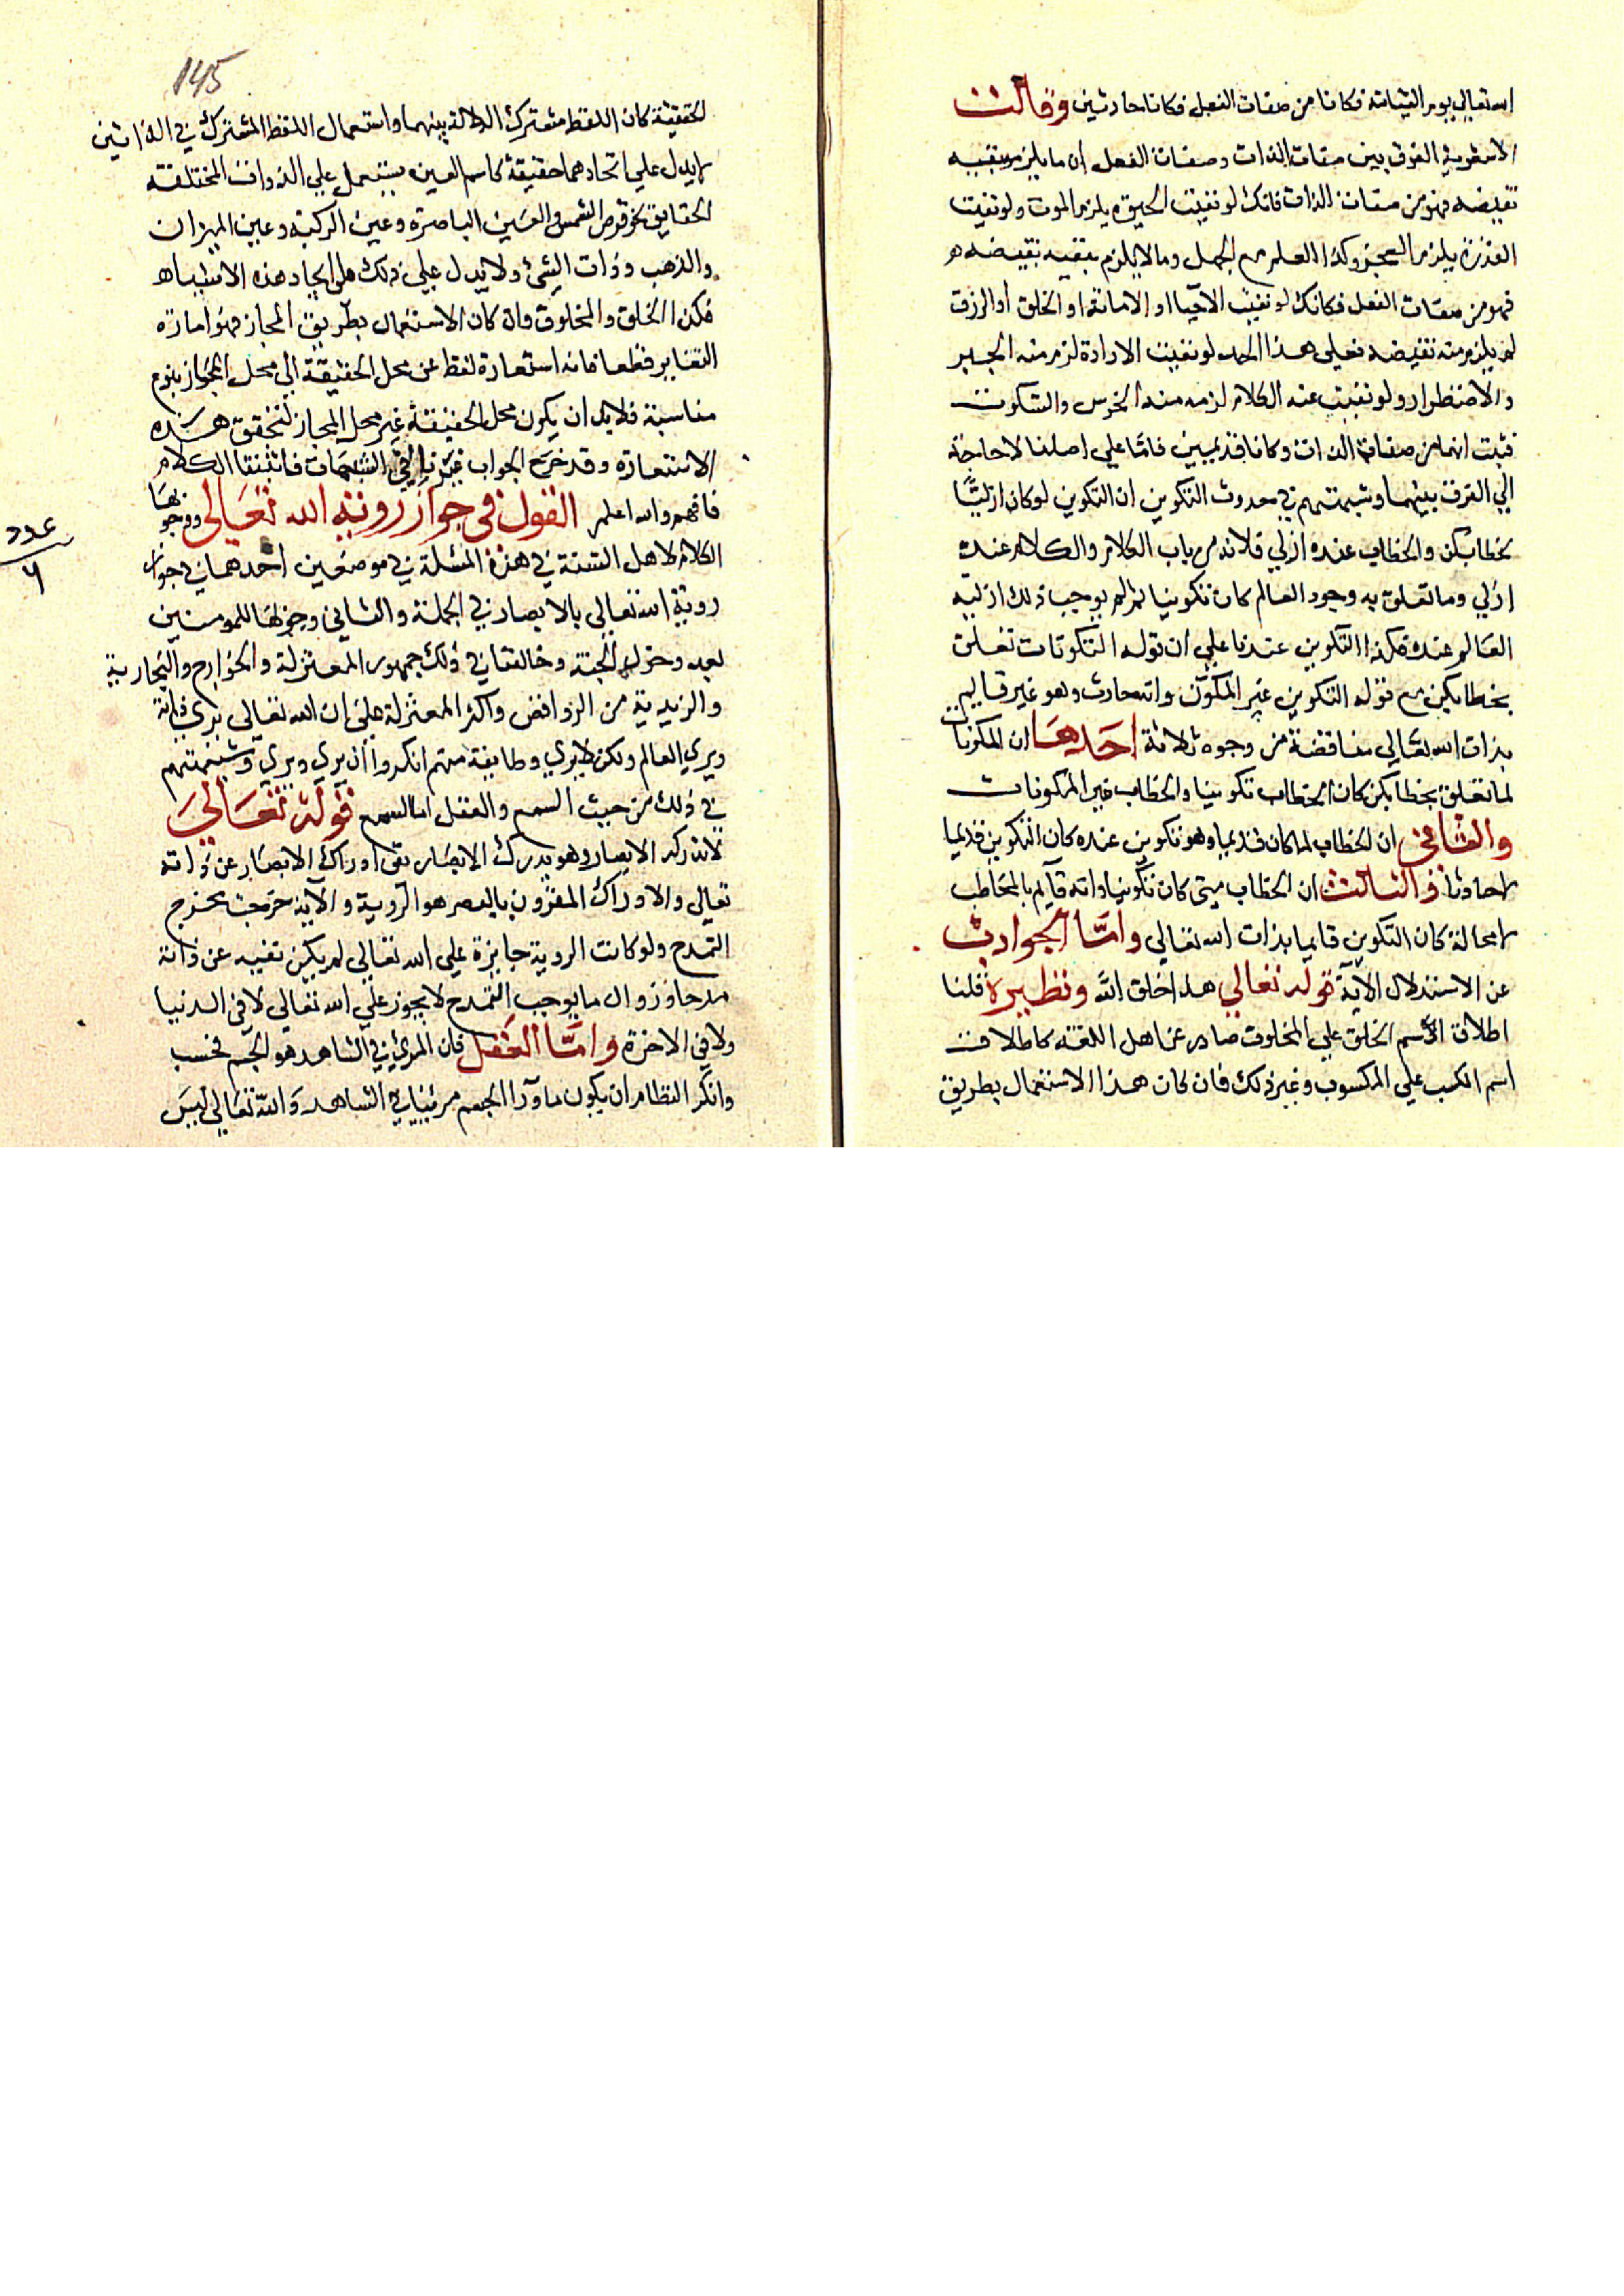 الله تعالي يوم القيامة فكانا من صفات الفعل فكانا حادثين وقالت
الاشعرية الفرق بين صفات الذات وصفات الفعل ان ما يلزم بنفيه
نقيضه فهو من صفات الذات فانك لو نفيت الحيوة يلزم الموت ولو نفيت
القدرة يلزم العجز وكذا العلم مع الجهل وما لا يلزم بنفيه نقيضه
فهو من صفات الفعل فكانك لو نفيت الاحياا و الاماتة او الخلق او الرزق
لم يلزم منه نقيضه فعلي هذا الحد لو نفيت الارادة لزم منه الجبر
والاضطرار ولو نفيت عنه الكلام لزمه منه الخرس والسكوت
فثبت انهما من صفات الذات وكانا قديمين فاما علي اصلنا لا حاجة
الي الفرق بينهما وشبهتهم في حدوث التكوين ان التكوين لو كان ازليًّا
بخطاب كن والخطاب عنده ازلي فلانه من باب الكلام والكلام عنده
ازلي وما تعلق به وجود العالم كان تكوينا ثم لم يوجب ذلك ازلية
العالم عنده فكذا التكوين عندنا علي ان قوله التكونات تعلق
بخطاب كن مع قوله التكوين غير المكوّن وانه حادث وهو غير قايم
بذات الله تعالي مناقضة من وجوه ثلاثة احدها ان المكونات
لما تعلق بخطاب كن كان الخطاب تكوينا والخطاب غير المكونات
والثاني ان الخطاب لما كان قديما وهو تكوين عنده كان التكوين قديما
لا حادثا والثالث ان الخطاب متي كان تكوينا وانه قايم بالمخاطب
لا محالة كان التكوين قايما بذات الله تعالي وامّا الجواب
عن الاستدلال الاية قوله تعالي هذا خلق الله ونظيره قلنا
اطلاق اسم الخلق علي المخلوق صادر عن اهل اللغة كاطلاق
اسم الكسب علي المكسوب وغير ذلك فان كان هذا الاستعمال بطريق
145
الحقيقة كان اللفظ مشترك الدلالة بينهما واستعمال اللفظ المشترك في الذاتين
لا يدل علي اتحادهما حقيقة كاسم العين يستعمل علي الذوات المختلفة
الحقايق نحو قرص الشمس والعين الباصرة وعين الركبة وعين الميزان
والذهب وذات الشئ ولا يدل علي ذلك علي اتحاد هذه الاشياء
فكذا الخلق والمخلوق وان كان الاستعمال بطريق المجاز فهو امارة
التغاير قطعا فانه استعارة لفظ عن محل الحقيقة الي محل المجاز بنوع
مناسبة فلا بد ان يكون محل الحقيقة غير محل المجاز لتحقق هذه
الاستعارة وقد خرج الجواب عن باقي الشبهات فاتبتنا الكلام
فافهم والله اعلم القول في جواز روية الله تعالي ووجوبها
الكلام لاهل السنة في هذه المسئلة في موضعين احدهما في جواز
روية الله تعالي بالابصار في الجملة والثاني وجوبها للمومنين
بعد دخول الجنة وخالفنا في ذلك جمهور المعتزلة والخوارج والنجارية
والزيدية من الروافض واكثر المعتزلة علي ان الله تعالي يري ذاته
ويري العالم ولكن لا يري وطايفة منهم انكروا ان يري ويري وشبهتهم
في ذلك من حيث السمع والعقل اما السمع قوله تعالي
لا تدركه الابصار وهو يدرك الابصار نفي ادراك الابصار عن ذاته
تعالي والادراك المقرون بالبصر هو الروية والاية خرجت مخرج
التمدح ولو كانت الروية جايزة علي الله تعالي لم يكن نفيه عن ذاته
مدحا وزوال ما يوجب التمدح لا يجوز علي الله تعالي لا في الدنيا
ولا في الاخرة وامّا العقل فان المرئي في الشاهد هو الجسم فحسب
وانكر النظام ان يكون ماورآ الجسم مرئيا في الشاهد والله تعالي ليس
عدد
٦